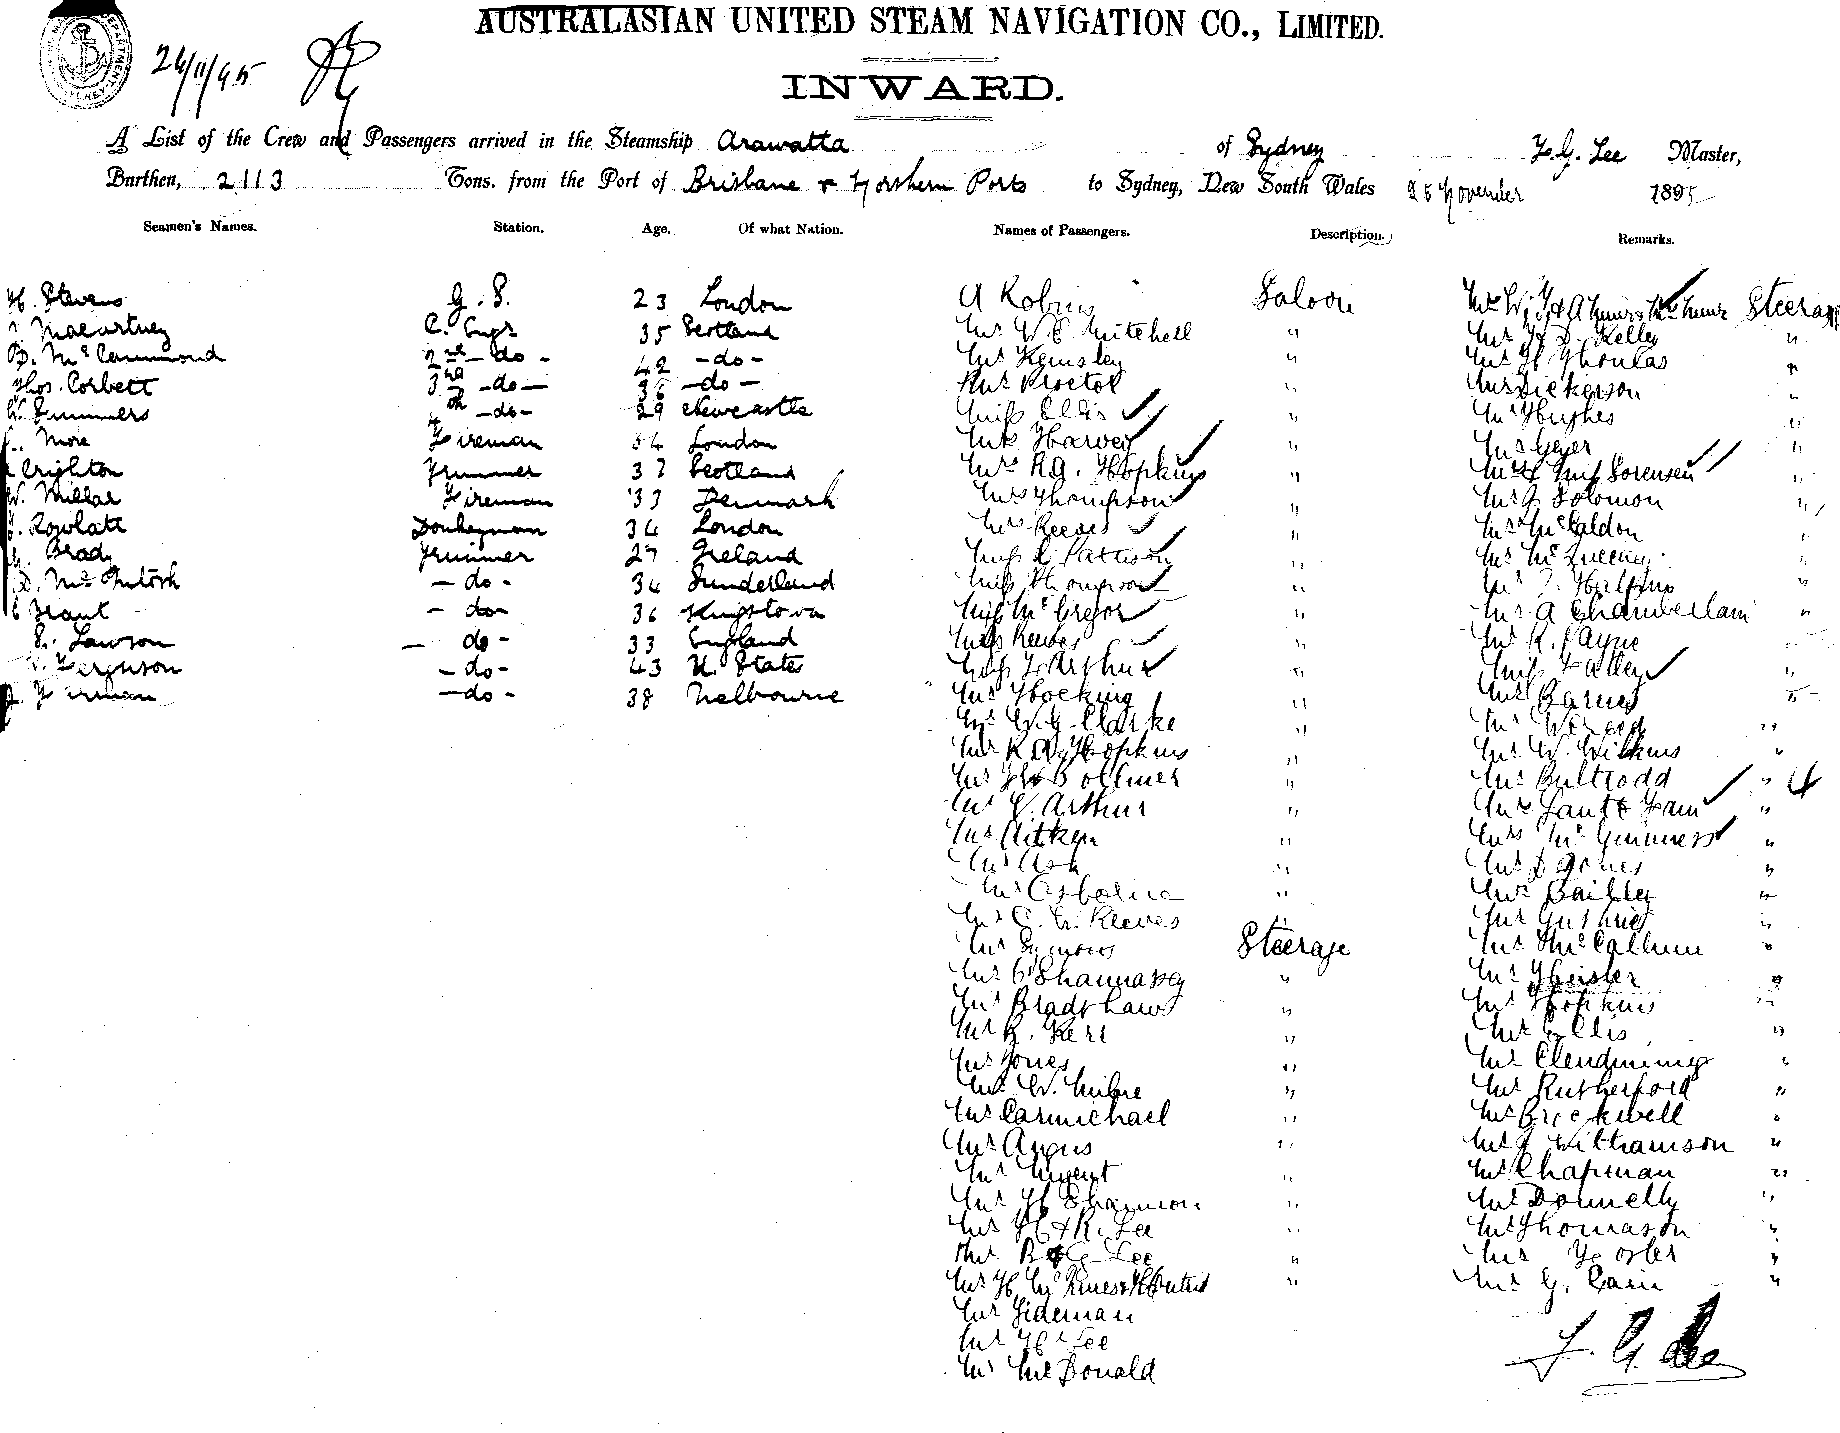 AUSTRALASIAN UNITED STEAM NAVIGATION CO., LIMITED.
26/11/95
INWARD.
A List of the Crew and Passengers arrived in the Steamship Arawatta of Sydney F. G. Lee Master,
Burthen, 2113 Tons. from the Port of Brisbane & Northern Ports to Sydney, New South Wales 25 November 1895
Seamen's Names. Station. Age. Of what Nation. Names of Passengers. Description. Remarks.
H. Stevens G. S. 23 London
Macartney C. Engr 35 Scotland
D. McCammond 2nd - do - 42 - do -
Thos. Corbett 3rd - do - 36 - do -
W. Summers 4th - do - 29 Newcastle
More Fireman 34 London
Crighton Trimmer 37 Scotland
W. Millar Fireman 33 Denmark
Rowlatt Donkeyman 34 London
Brady Trimmer 27 Ireland
D. McIntosh - do - 34 Sunderland
Grant - do - 36 Kingstown
Lawson - do - 33 England
Ferguson - do - 43 U. States
- do - 38 Melbourne
A Robins Saloon
Mr W. E. Mitchell "
Mr Kemsley "
Mr Proctor
Miss Ellis "
Mrs Harvey "
Mrs R.A. Hopkins "
Mrs Thompson "
Mrs Reeves "
Miss L Pattison "
Miss Thompson "
Miss McGregor "
Miss Reeves "
Miss F Arthur "
Mr Hocking "
Mr W. G. Clarke "
Mr R. A. Hopkins "
Mr Bollmer "
Mr V. Arthur "
Mr Aitken "
Mr Ash "
Mr Osborne "
Mr C. G. Reeves "
Mr Symons Steerage
Mr O'Shannassy "
Mr Bradshaw "
Mr R. Kerr "
Mr Jones "
Mr W. Milne "
Mr Carmichael "
Mr Angus "
Mr Nugent
Mr H Shannon "
Mr H & R. Lee "
Mr B & G Lee "
Mr H
Mr Tideman
Mr H Lee
Mr McDonald
Steerage
Mr Kelley "
Mr H Thoulas "
Mr Dickerson "
Mr Hughes "
Mr Geyer "
Mrs & Miss Sorensen "
Mr J Solomon "
Mr McCaldon "
Mr McQueeny "
Mr T. Halpins "
Mr A Chamberlain "
Mr R. Payne
Miss Falley "
Mr Barnes "
Mr "
Mr W. Wilkins "
Mr Bultrodd "
Mr "
Mrs McGuinness "
Mr D Jones "
Mr Bailey "
Mr Guthrie "
Mr McCallum "
Mr Theisler "
Mr Hopkins "
Mr Ellis "
Mr Clendinning "
Mr Rutherford "
Mr Brickwell "
Mr J Williamson "
Mr Chapman "
Mr Donnelly "
Mr Thomason "
Mr Foster "
Mr G. Cain "
F. G. Lee